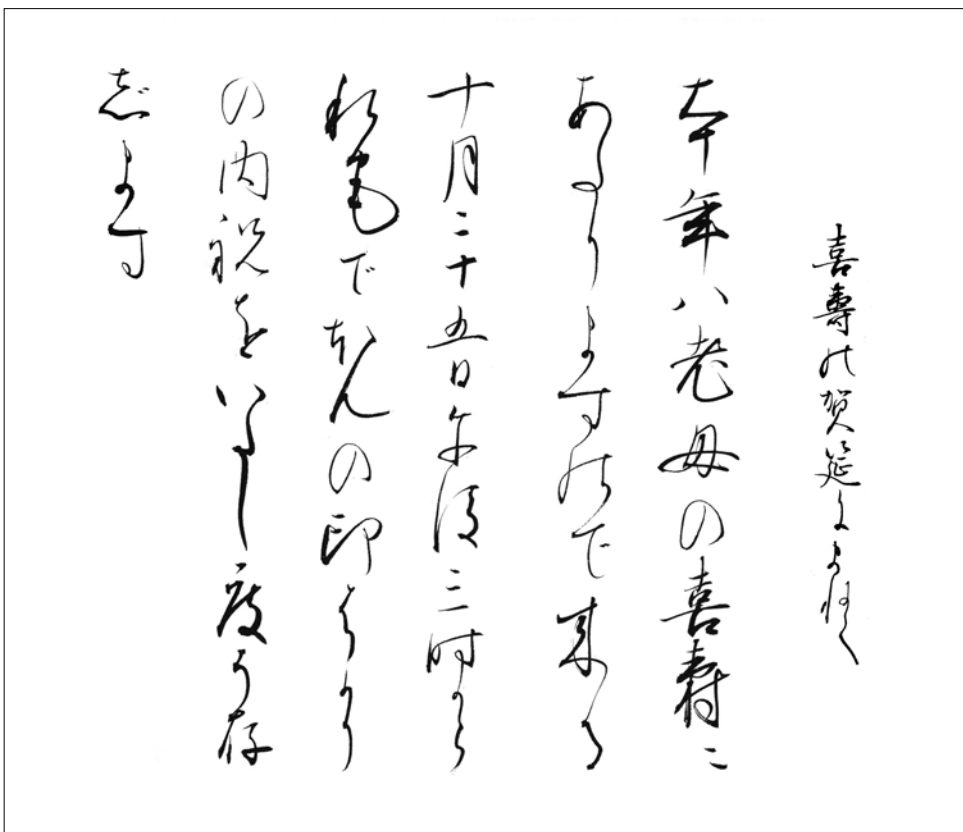 喜壽の賀筵にまねく
本年ハ老母の喜寿ニ
あたりますので来る
十月二十五日午後三時から
私宅でほんの印ばかり
の内祝をいたし度う存
じます